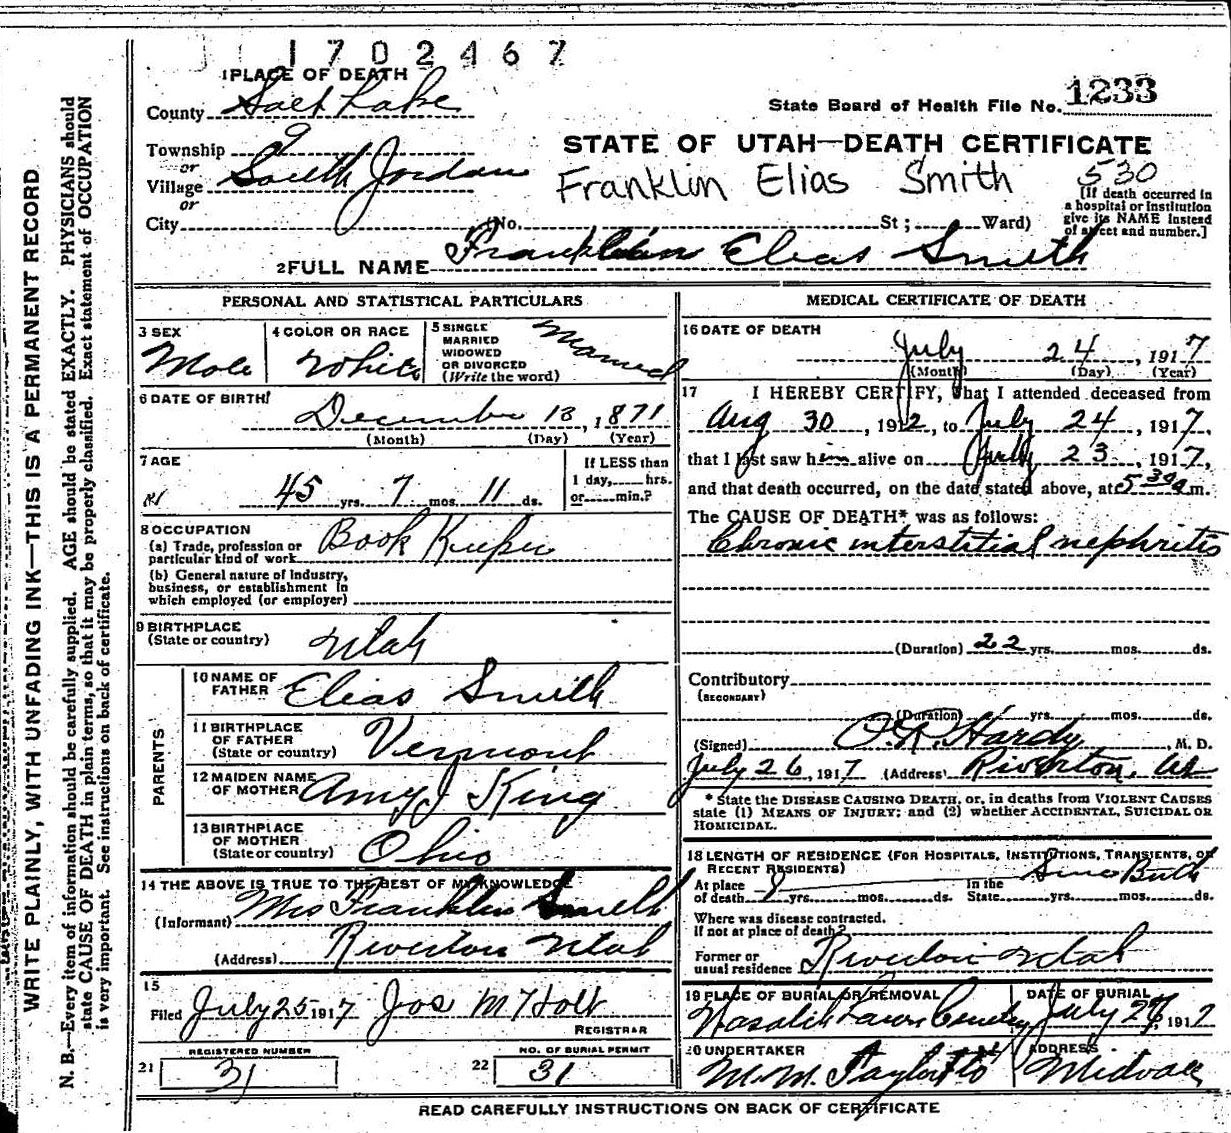 1702467
1 PLACE OF DEATH
County Salt Lake
State Board of Health File No. 1233
Township 9
or
Village South Jordan
or
City
STATE OF UTAH—DEATH CERTIFICATE
Franklin Elias Smith 530
(No. St; Ward)
[If death occurred in
a hospital or institution
give its NAME instead
of street and number.]
2 FULL NAME Franklin Elias Smith
PERSONAL AND STATISTICAL PARTICULARS
3 SEX
Male
4 COLOR OR RACE
White
5 SINGLE
MARRIED
WIDOWED
OR DIVORCED
(Write the word)
Married
6 DATE OF BIRTH
December 13, 1871
(Month) (Day) (Year)
7 AGE
45 yrs. 7 mos. 11 ds.
If LESS than
1 day, hrs.
or min.?
8 OCCUPATION
(a) Trade, profession or
particular kind of work Book Keeper
(b) General nature of Industry,
business, or establishment in
which employed (or employer)
9 BIRTHPLACE
(State or country) Utah
PARENTS
10 NAME OF
FATHER Elias Smith
11 BIRTHPLACE
OF FATHER
(State or country) Vermont
12 MAIDEN NAME
OF MOTHER Amy J King
13 BIRTHPLACE
OF MOTHER
(State or country) Ohio
14 THE ABOVE IS TRUE TO THE BEST OF MY KNOWLEDGE
(Informant) Mrs Franklin Smith
(Address) Riverton Utah
15
Filed July 25 1917 Jos M Holt
REGISTRAR
REGISTERED NUMBER
21 31
NO. OF BURIAL PERMIT
22 31
MEDICAL CERTIFICATE OF DEATH
16 DATE OF DEATH
July 24, 1917
(Month) (Day) (Year)
17 I HEREBY CERTIFY, that I attended deceased from
Aug 30, 1912, to July 24, 1917,
that I last saw him alive on July 23, 1917,
and that death occurred, on the date stated above, at 5 30 a m.
The CAUSE OF DEATH* was as follows:
Chronic interstitial nephritis
(Duration) 22 yrs. mos. ds.
Contributory
(SECONDARY)
(Duration) yrs. mos. ds.
(Signed) O.R. Hardy, M. D.
July 26, 1917 (Address) Riverton, Ut
* State the DISEASE CAUSING DEATH, or, in deaths from VIOLENT CAUSES
state (1) MEANS OF INJURY; and (2) whether ACCIDENTAL, SUICIDAL OR
HOMICIDAL.
18 LENGTH OF RESIDENCE (FOR HOSPITALS, INSTITUTIONS, TRANSIENTS, OR
RECENT RESIDENTS) Since Birth
At place
of death yrs. mos. ds.
In the
State yrs. mos. ds.
Where was disease contracted.
if not at place of death?
Former or
usual residence Riverton Utah
19 PLACE OF BURIAL OR REMOVAL
Wasatch Lawn Cemetery
DATE OF BURIAL
July 1917
20 UNDERTAKER
M. M. Taylor
ADDRESS
Midvale
READ CAREFULLY INSTRUCTIONS ON BACK OF CERTIFICATE
WRITE PLAINLY, WITH UNFADING INK—THIS IS A PERMANENT RECORD
N. B.—Every item of information should be carefully supplied. AGE should be stated EXACTLY. PHYSICIANS should
state CAUSE OF DEATH in plain terms, so that it may be properly classified. Exact statement of OCCUPATION
is very important. See instructions on back of certificate.